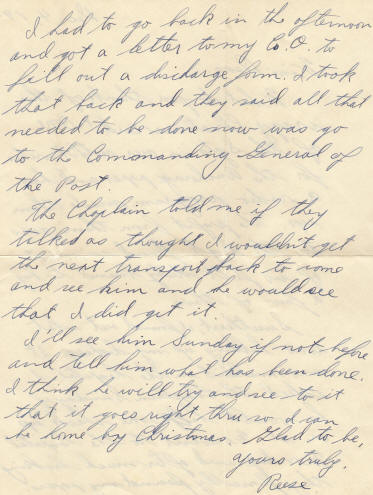 I had to go back in the afternoon
and got a letter to my Co. O. to
fill out a discharge form. I took
that back and they said all that
needed to be done now was go
to the Commanding General of
the Post.
The Chaplain told me if they
talked as thought I wouldn't get
the next transport back to come
and see him and he would see
that I did get it.
I'll see him Sunday if not before
and tell him what has been done.
I think he will try and see to it
that it goes right thru so I can
be home by Christmas. Glad to be,
yours truly,
Reese